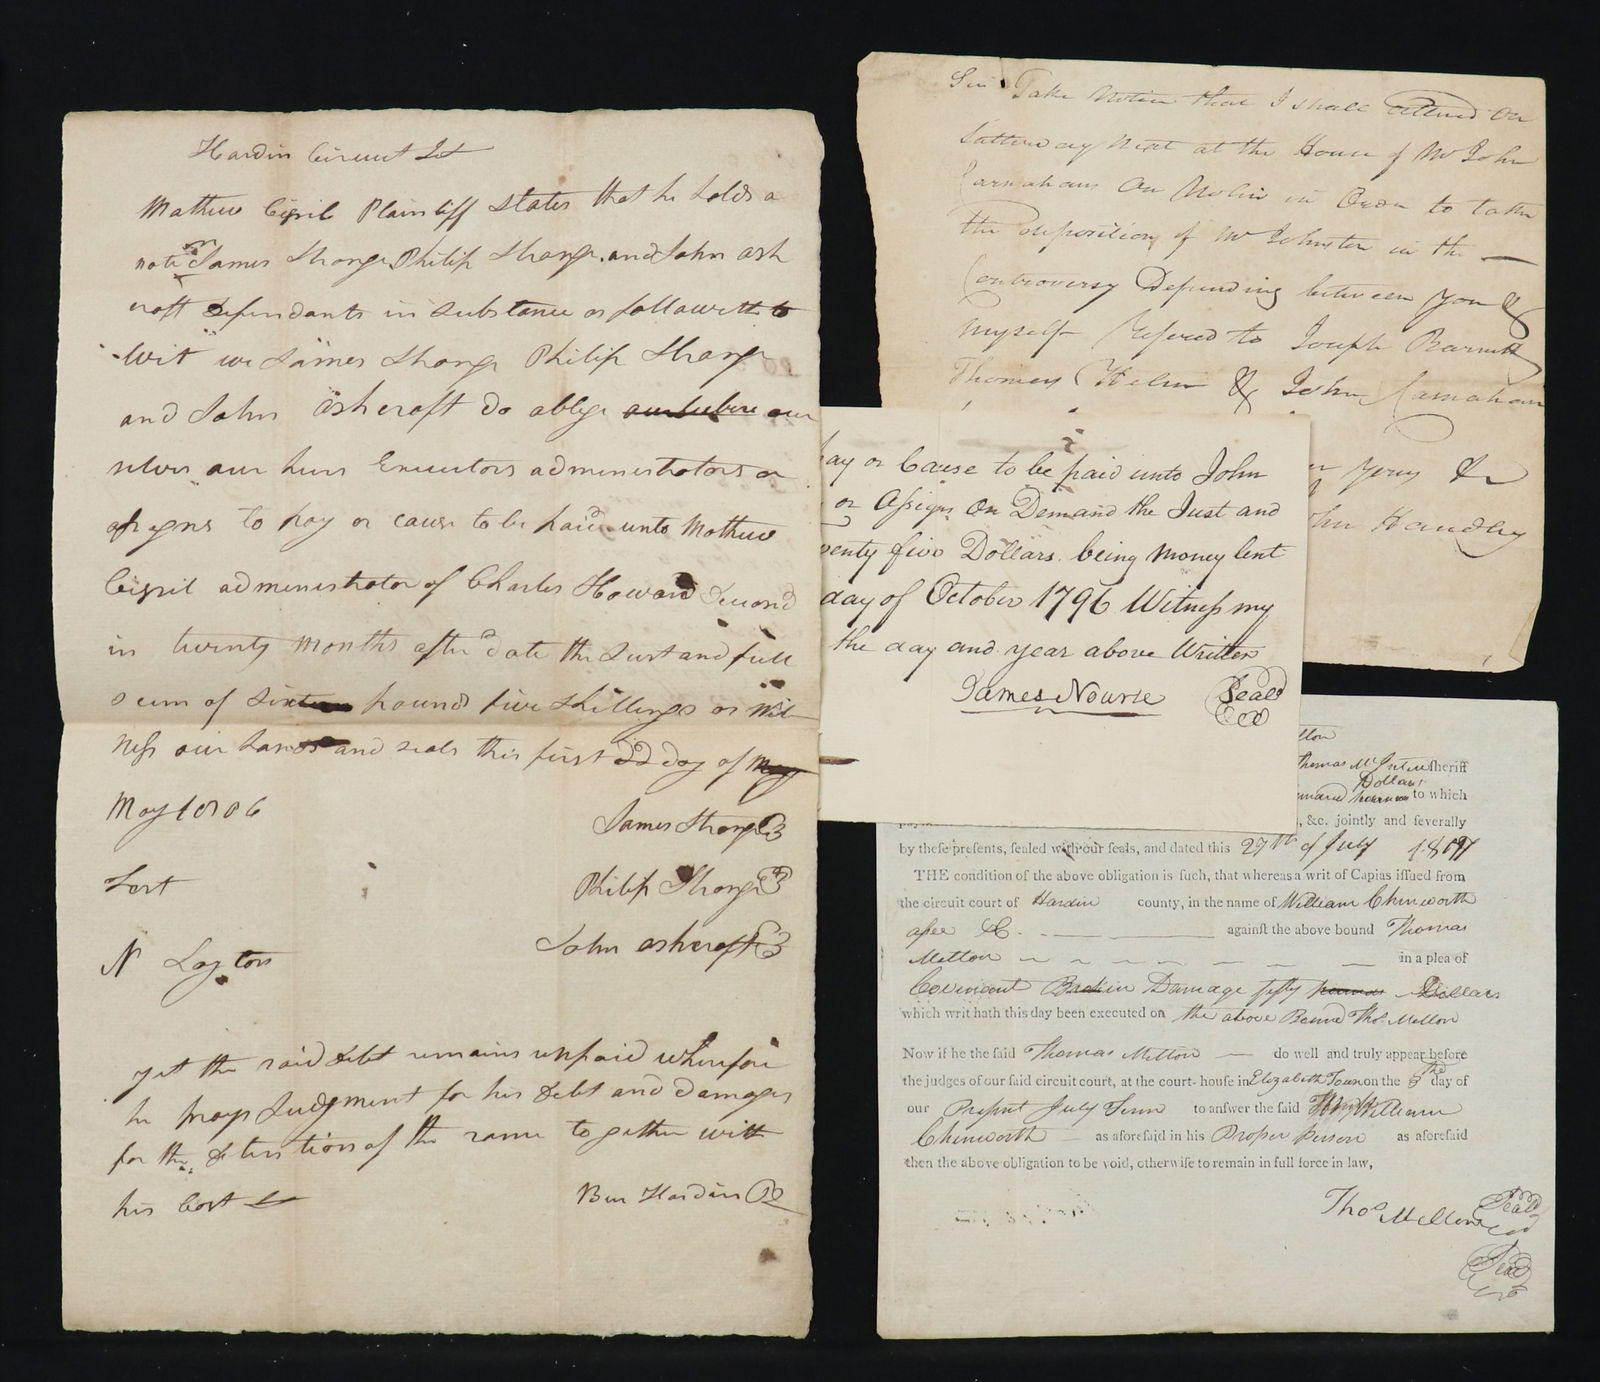 Hardin Circuit Sct
Mathew Cissil Plaintiff States that he holds a
note on James Shange Philip Shange and John ash
craft defendants in substance as followeth to
wit we James Shange Philip Shange
and John ashcraft do oblige our
selves our heirs Executors administrators or
assegns to pay or cause to be paid unto Mathew
Cissil administrator of Charles Howard
in twenty months after date the Just and full
sum of pounds five shillings as wit
ness our hands and seals this first day of May
May 1806
James Shange
Test
Philip Shange
John ashcraft
N Layton
yet the said debt remains unpaid wherefore
he prays Judgment for his debt and damages
for the detention of the same to gether with
his Cost &
Ben Hardin
Sir Take Notice that I shall attend on
Satterday Next at the House of Mr John
Carnahans on Nolin in Order to take
the deposition of Mr Johnston in the
Controversy Depending between you &
myself refered to Joseph Barnett
Thomas Helm & John Carnahan
yours &c
John Handley
pay or Cause to be paid unto John
or Assigns On Demand the Just and
five Dollars being Money lent
day of October 1796 Witness my
the day and year above Written
James Nourse
Seal
Thomas Sheriff
Dollars
to which
, &c. jointly and ſeverally
by theſe preſents, ſealed with our ſeals, and dated this 27th of July 1809
THE condition of the above obligation is ſuch, that whereas a writ of Capias iſſued from
the circuit court of Hardin county, in the name of William Chinworth
aſsee &c. againſt the above bound Thomas
Melton in a plea of
Covenant Broken Damage fifty pounds Dollars
which writ hath this day been executed on the above Bound Thos Melton
Now if he the ſaid Thomas Melton do well and truly appear before
the judges of our ſaid circuit court, at the court-house in Elizabeth Town on the 3rd day of
our Present July Term to anſwer the ſaid William
Chinworth as aforeſaid in his Proper person as aforeſaid
then the above obligation to be void, otherwiſe to remain in full force in law,
Thos Melton Seal
Seal